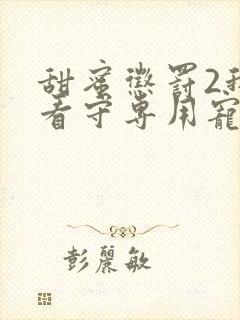 甜蜜懲罰2我
看守專用寵
彭麗敏